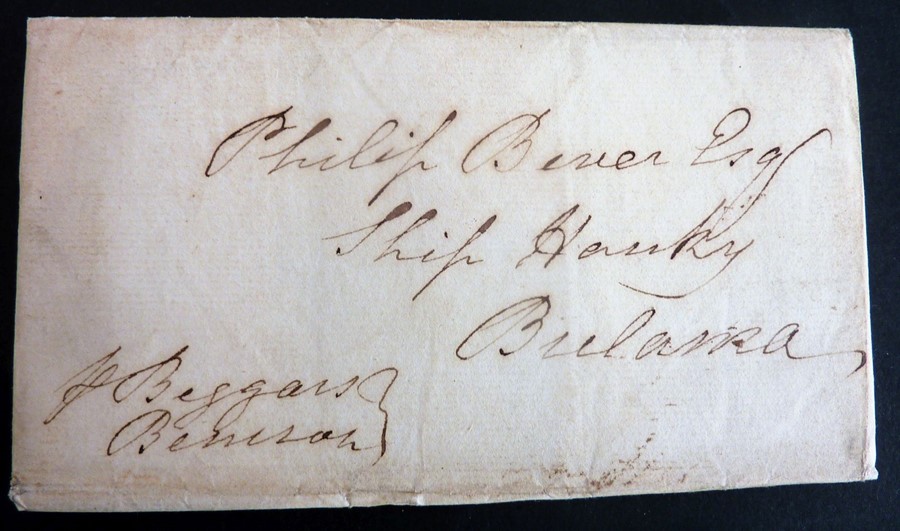 Philip Bever Esq
Ship Hanky
Bulama
⅌ Beggars
Benison